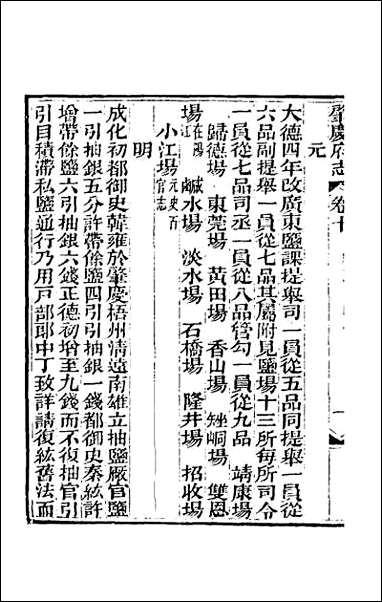 肇慶府志 卷十
元
大德四年改廣東鹽課提舉司一員從五品同提舉一員從
六品副提舉一員從七品其屬附見鹽場十三所每所司令
一員從七品司丞一員從八品管勾一員從九品 靖康場
歸德場 東莞場 黃田場 香山場 矬峒場 雙恩
場在陽江 鹹水場 淡水場 石橋場 隆井場 招收場
小江場元史百官志
明
成化初都御史韓雍於肇慶梧州清遠南雄立抽鹽厰官鹽
一引抽銀五分許帶餘鹽四引引抽銀一錢都御史秦紘許
增帶餘鹽六引抽銀六錢正德初增至九錢而不復抽官引
引目積滯私鹽通行乃用戸部郎中丁致祥請復紘舊法而